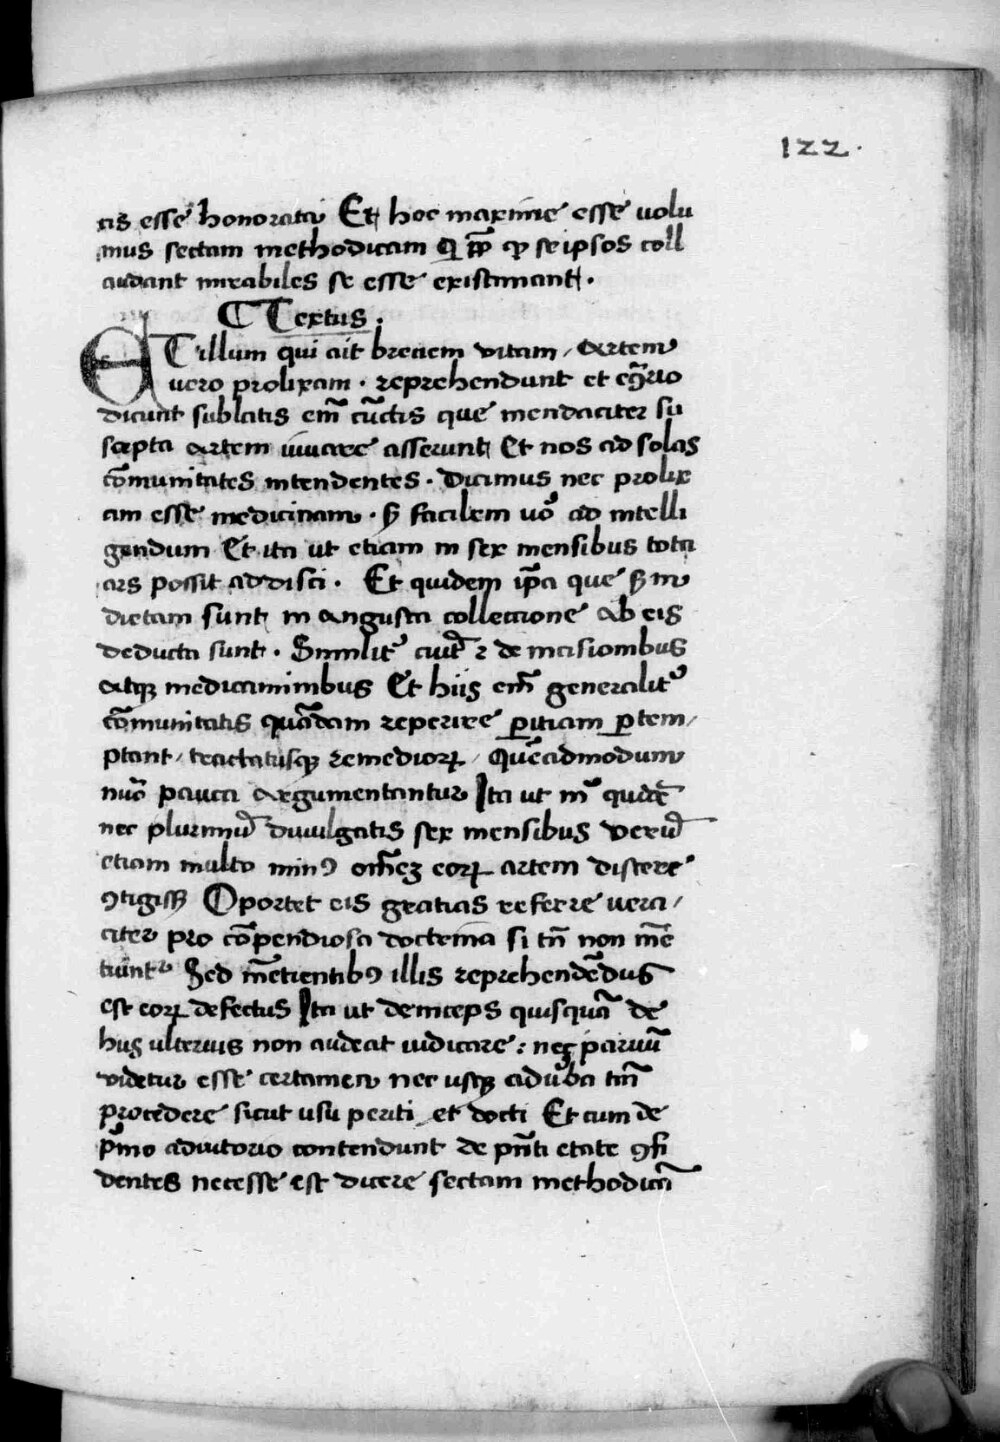 122.
tis esse honorata Et hoc maxime esse uolu
mus sectam methodicam Q ip̄o ꝙ se ipsos coll
audant mirabiles se esse existimant.
¶ Textus.
ET illum qui ait breuem vitam / artem
uero prolixam . reprehendunt et ꝯ̄rio
dicunt sublatis em̄ cūctis que mendaciter su
scepta artem iuuare asserunt Et nos ad solas
cōmunitates intendentes . dicimus nec prolix
am esse medicinam . s̄ facilem uo̊ ad intelli
gendum Et ita ut etiam in sex mensibus tota
ars possit addisci . Et quidem ip̄a que s̄m
dietam sunt in angusta collectione ab eis
deducta sunt . Similit᷑ aut̄ ⁊ de incisionibus
atqꝫ medicaminibus Et hiis em̄ generalit᷑
cōmunitatis quādam reperire ꝑitiam ꝑtem/
ptant / tractatusqꝫ remedioꝝ / Quēadmodum
nūc pauca argumentantur Ita ut in᷑ quidē
nec plurimū diuulgatis sex mensibus verū
etiam multo minꝯ om̄eꝫ eoꝝ artem discere
ꝯtigiss̄ Oportet eis gratias referre uera/
citer pro cōpendiosa doctrina si tn̄ non mē
tiunt᷑ Sed mētientibꝯ illis reprehendēdus
est eoꝝ defectus Ita ut deinceps quisquā de
hus ulterius non audeat iudicare : neqꝫ paruū
videtur esse certamen nec usqꝫ ad u᷑ba tm̄
procedere sicut usu periti et docti Et cum de
p̊mo adiutorio contendunt de pn̄ti etate ꝯfi
dentes necesse est dicere sectam methodicā